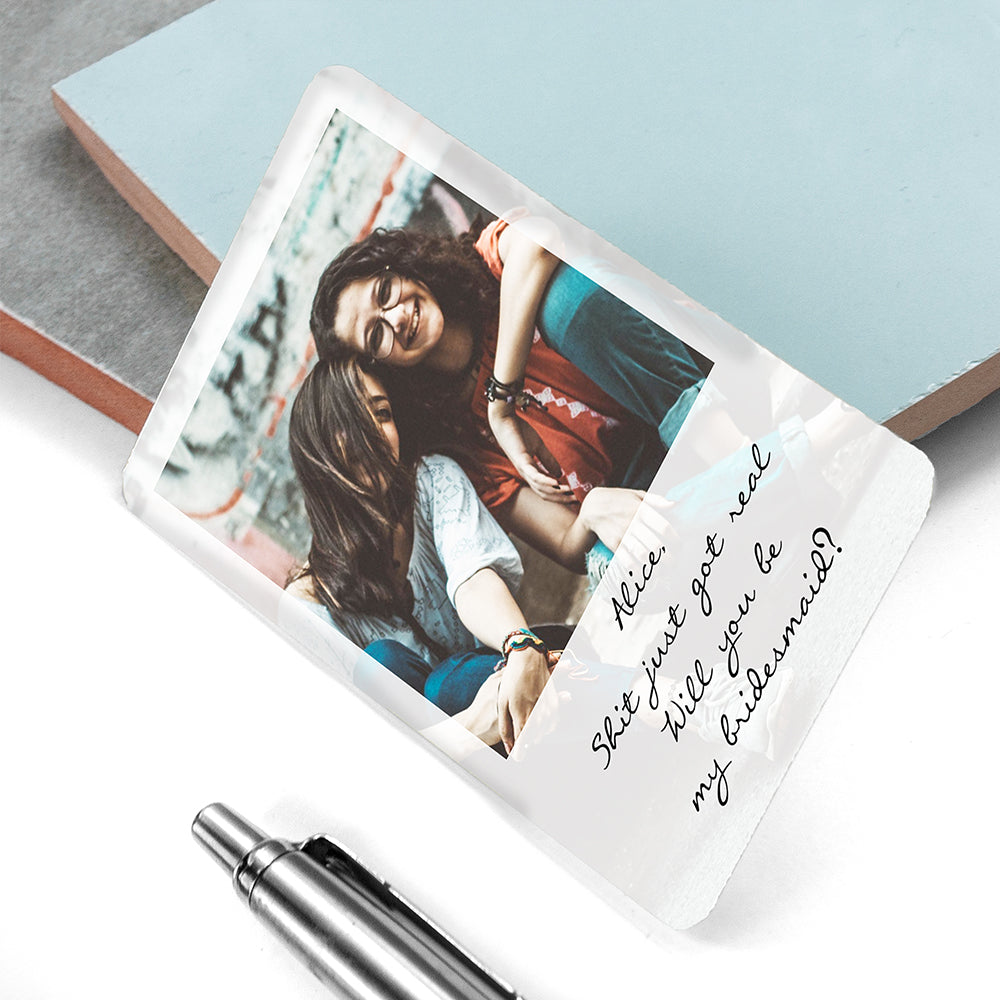 Alice,
Shit just got real
Will you be
my bridesmaid?